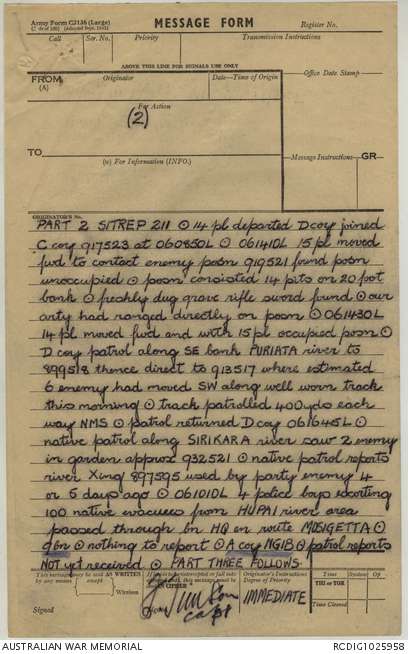 Army Form C2136 (Large)
MESSAGE FORM
Register No.
Call
Ser. No.
Priority
Transmission Instructions
ABOVE THIS LINE FOR SIGNALS USE ONLY
FROM
(A)
Originator
Date—Time of Origin
Office Date Stamp
For Action
(2)
TO
(w) For Information (INFO.)
Message Instructions
GR
ORIGINATOR'S No.
PART 2 SITREP 211 ⊙ 14 pl departed D coy joined
C coy 917523 at 060850L ⊙ 061410L 15 pl moved
fwd to contact enemy posn 919521 found posn
unoccupied ⊙ posn consisted 14 pits on 20 foot
bank ⊙ freshly dug grave rifle sword found ⊙ our
arty had ranged directly on posn ⊙ 061430L
14 pl moved fwd and with 15 pl occupied posn ⊙
D coy patrol along SE bank PURIATA river to
899518 thence direct to 913517 where estimated
6 enemy had moved SW along well worn track
this morning ⊙ track patrolled 400 yds each
way NMS ⊙ patrol returned D coy 061645L ⊙
native patrol along SIRIKARA river saw 2 enemy
in garden approx 932521 ⊙ native patrol reports
river Xing 897595 used by party enemy 4
or 5 days ago ⊙ 061010L 4 police boys escorting
100 native evacuees from HUPAI river area
passed through bn HQ en route MOSIGETTA ⊙
9 bn ⊙ nothing to report ⊙ A coy NGIB ⊙ patrol reports
Not yet received ⊙ PART THREE FOLLOWS.
This message may be sent AS WRITTEN
by any means
IN CIPHER
Originator's Instructions
Degree of Priority
Time
System
Op
THI or TOR
IMMEDIATE
Time Cleared
Signed
Capt
AUSTRALIAN WAR MEMORIAL
RCDIG1025958